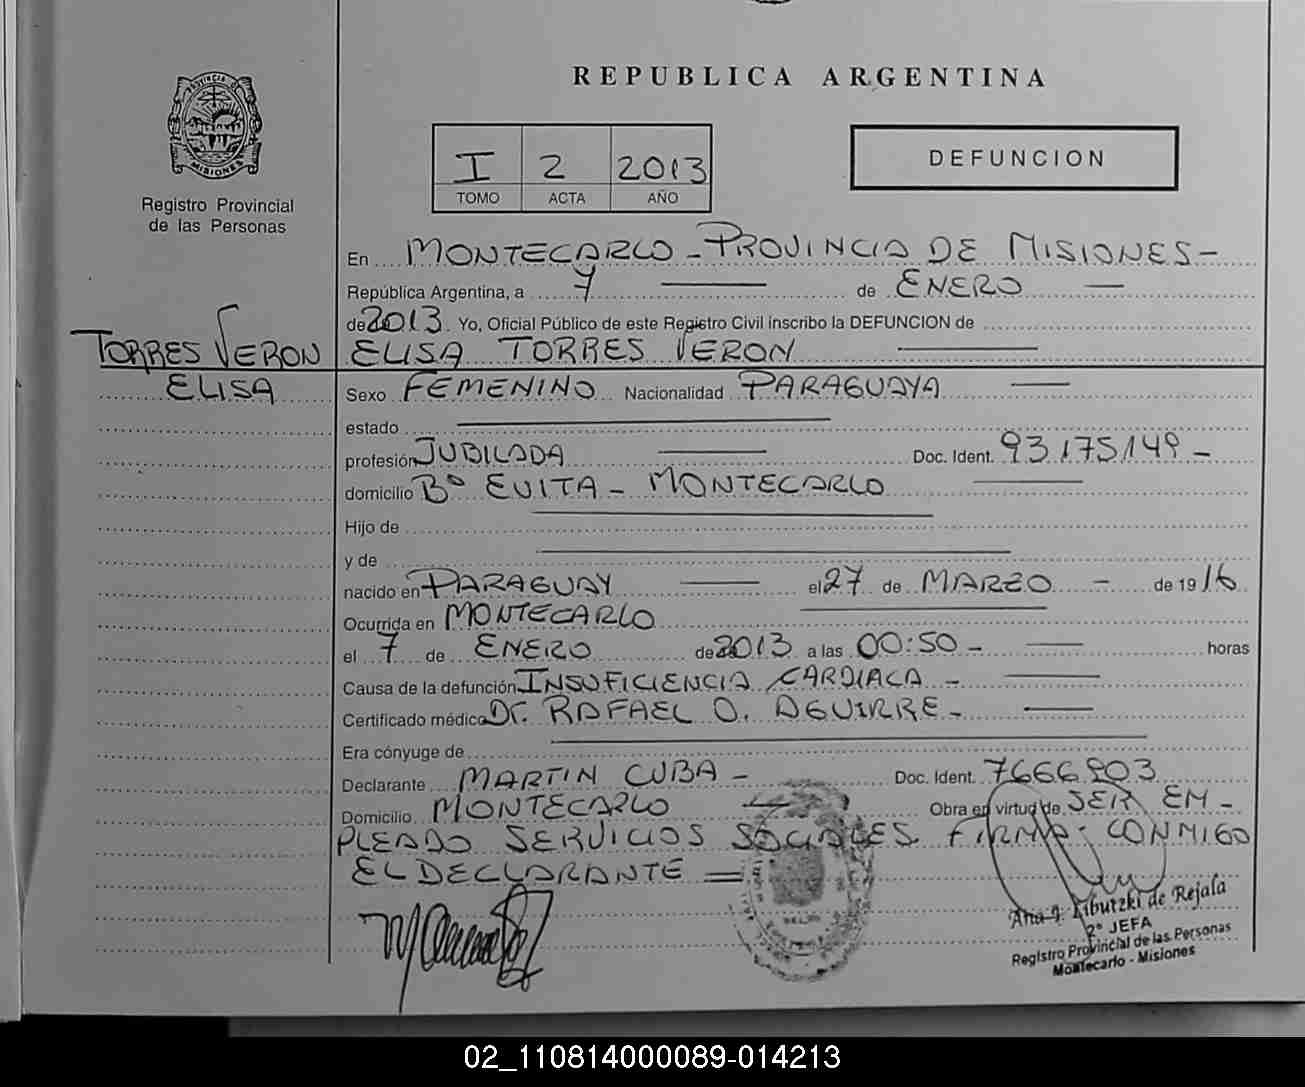 REPUBLICA ARGENTINA
PROVINCIA DE
MISIONES
Registro Provincial
de las Personas
I 2 2013
TOMO ACTA AÑO
DEFUNCION
En MONTECARLO - PROVINCIA DE MISIONES -
República Argentina, a 7 de ENERO
de 2013. Yo, Oficial Público de este Registro Civil inscribo la DEFUNCION de
TORRES VERON
ELISA
ELISA TORRES VERON
Sexo FEMENINO Nacionalidad PARAGUAYA
estado
profesión JUBILADA Doc. Ident. 93.175.149 -
domicilio Bº EVITA - MONTECARLO
Hijo de
y de
nacido en PARAGUAY el 27 de MARZO - de 19 16
Ocurrida en MONTECARLO
el 7 de ENERO de 2013 a las 00:50 - horas
Causa de la defunción INSUFICIENCIA CARDIACA -
Certificado médico Dr. RAFAEL O. AGUIRRE -
Era cónyuge de
Declarante MARTIN CUBA - Doc. Ident. 7666903
Domicilio MONTECARLO Obra en virtud de SER EM-
PLEADO SERVICIOS SOCIALES. FIRMA CONMIGO
EL DECLARANTE =
Ana J. Liburzki de Rejala
2º JEFA
Registro Provincial de las Personas
Montecarlo - Misiones
02_110814000089-014213